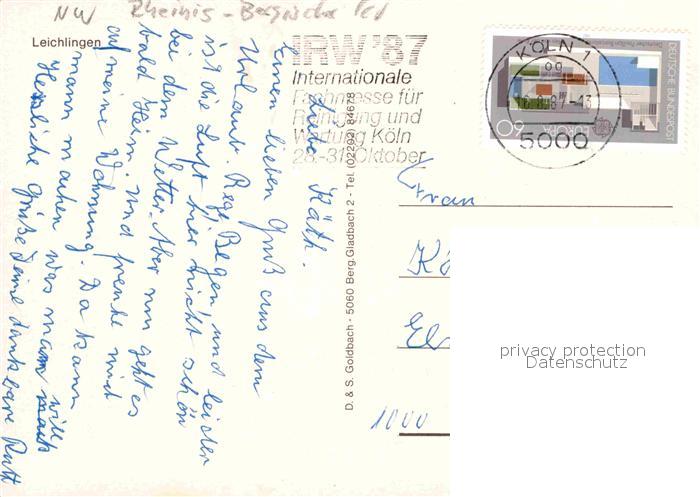 NW Rheinis - Bergische
Leichlingen
Liebe Käth.
Einen lieben Gruß aus dem
Urlaub. Rege Regen und leider
ist die Luft hier nicht schön
bei dem Wetter. Aber nun geht es
bald Heim. Und freute mich
auf meine Wohnung. Da kann
mann machen was mann will
Herzliche Grüße Deine dankbare Rutt
IRW '87
Internationale
Fachmesse für
Reinigung und
Wartung Köln
28.-31. Oktober
KÖLN 1
5000
DEUTSCHE BUNDESPOST
EUROPA
60
D. & S. Goldbach - 5060 Berg. Gladbach 2 - Tel. (02202) 84678
Frau
1000
privacy protection
Datenschutz